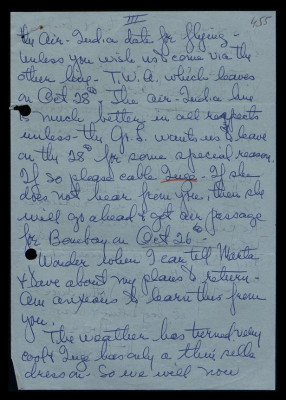 III
455
the Air-India date for flying -
Unless you wish us come via the
other line - T.W.A. which leaves
on Oct 28th. The Air-India line
is much better in all respects
unless - the G. S. wants us to leave
on the 28th for some special reason.
If so please cable Inge. If she
does not hear from you, then she
will go ahead & get our passage
for Bombay on Oct 26th
Wonder when I can tell Marta
& Dave about my plans & return -
Am anxious to learn this from
you.
The weather has turned very
cool & Inge has only a thin silk
dress on - So we will now